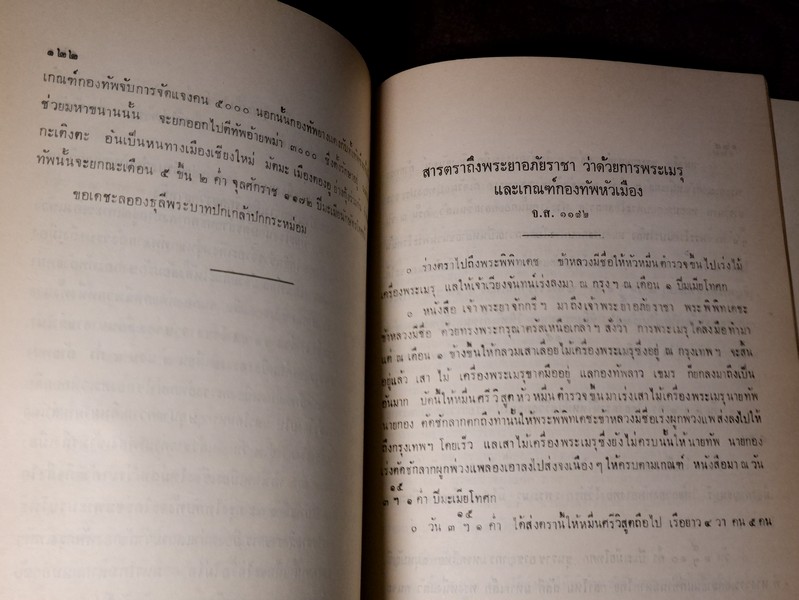 ๑๒๒
เกณฑ์กองทัพจับการจัดแจงคน ๕๐๐๐ นอกนั้นกองทัพ
ช่วยมหาขนานนั้น จะยกออกไปตีทัพอ้ายพม่า ๓๐๐๐ ซึ่ง
กะเติงตะ อันเป็นหนทางเมืองเชียงใหม่ มัตมะ เมือง
ทัพนั้นจะยกณะเดือน ๕ ขึ้น ๒ ค่ำ จุลศักราช ๑๑๘๒ ปีมะเมีย
ขอเดชะละอองธุลีพระบาทปกเกล้าปกกระหม่อม
สารตราถึงพระยาอภัยราชา ว่าด้วยการพระเมรุ
และเกณฑ์กองทัพหัวเมือง
จ.ศ. ๑๑๘๒
๏ ร่างตราไปถึงพระพิพิทเดช ข้าหลวงมีชื่อให้หัวหมื่นตำรวจขึ้นไปเร่งไม้
เครื่องพระเมรุ แลให้เจ้าเวียงจันทน์เร่งลงมา ณ กรุงฯ ณ เดือน ๑ ปีมเมียโทศก
๏ หนังสือ เจ้าพระยาจักกรีฯ มาถึงเจ้าพระยาอภัยราชา พระพิพิทเดชะ
ข้าหลวงมีชื่อ ด้วยทรงพระกรุณาตรัสเหนือเกล้าฯ สั่งว่า การพระเมรุได้ลงมือทำมา
แต่ ณ เดือน ๑ ข้างขึ้นให้กลวมเสาเลื่อยไม้เครื่องพระเมรุซึ่งอยู่ ณ กรุงเทพฯ จะสิ้น
อยู่แล้ว เสา ไม้ เครื่องพระเมรุขาดมืออยู่ แลกองทัพลาว เขมร ก็ยกลงมาถึงเป็น
อันมาก บัดนี้ให้หมื่นศรีวิสุดหัวหมื่นตำรวจขึ้นมาเร่งเสาไม้เครื่องพระเมรุนายทัพ
นายกอง คัดชักลากตกถึงท่านั้นให้พระพิพิทเดชะข้าหลวงมีชื่อเร่งผูกพ่วงแพส่งลงไปให้
ถึงกรุงเทพฯ โดยเร็ว แลเสาไม้เครื่องพระเมรุซึ่งยังไม่ครบนั้นให้นายทัพ นายกอง
เร่งคัดชักลากผูกพ่วงแพล่องเอาลงไปส่งจงเนืองๆ ให้ครบตามเกณฑ์ หนังสือมา ณ วัน
๓ ฯ ๑๕ ๑ ค่ำ ปีมะเมียโทศก
๏ วัน ๓ ฯ ๑๕ ๑ ค่ำ ได้ส่งตรานี้ให้หมื่นศรีวิสูตถือไป เรือยาว ๔ วา คน ๕ คน